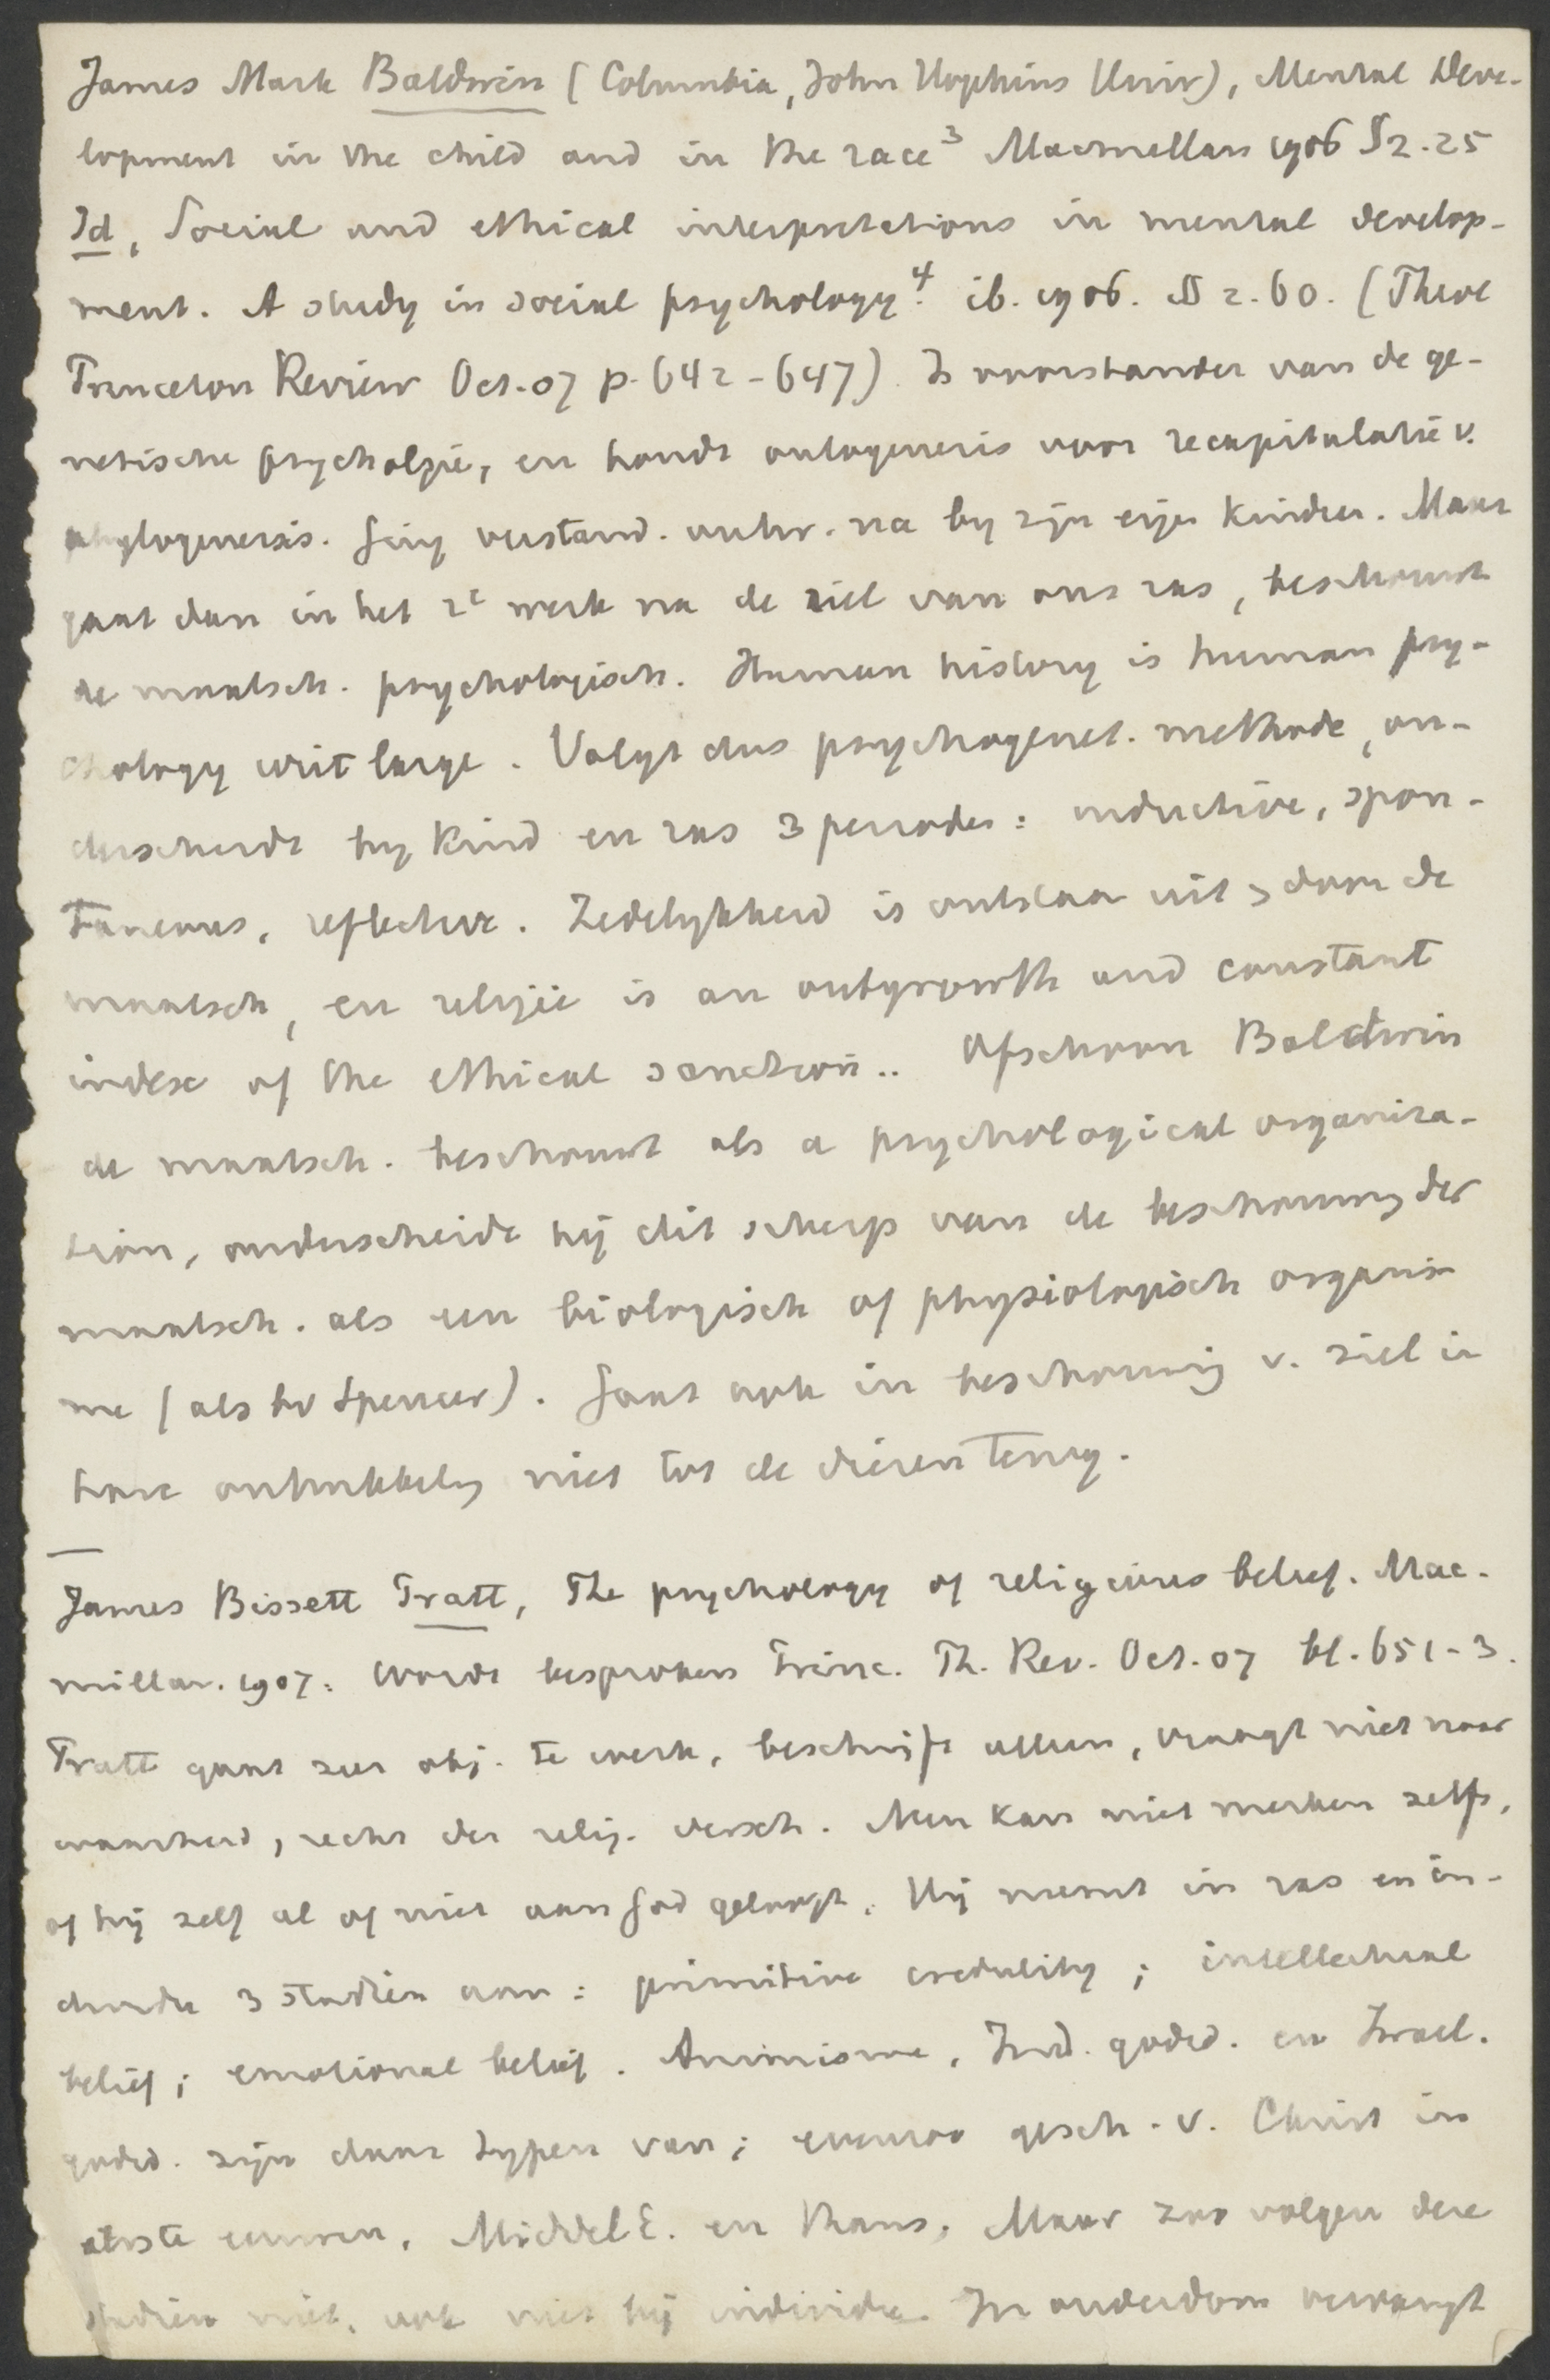 James Mark Baldwin (Columbia, John Hopkins Univ), Mental Deve-
lopment in the child and in the race³ Macmillan 1906 $2.25
Id, Social and ethical interpretations in mental develop-
ment. A study in social psychology⁴. ib. 1906. $ 2.60. (Theol
Princeton Review Oct. 07 p. 642-647). Is voorstander van de ge-
netische psycholgie, en houdt ontogenesis voor recapitulatie v.
phylogenesis. Ging verstand. ontw. na by zyn eigen kinderen. Maar
gaat dan in het 2e werk na de ziel van ons ras, beschouwt
de maatsch. psychologisch. Human history is human psy-
chology writ large. Volgt dus psychogenet. methode, on-
derscheidt by kind en ras 3 perioden: inductive, spon-
taneous, reflective. Zedelykheid is ontstaan uit > door de
maatsch, en religie is an outgrowth and constant
index of the ethical sanction.. Ofschoon Baldwin
de maatsch. beschouwt als a psychological organiza-
tion, onderscheidt hij dit scherp van de beschouwing der
maatsch. als een biologisch of physiologisch organis-
me (als bv Spencer). Gaat ook in beschouwing v. ziel in
hare ontwikkeling niet tot de dieren terug.
James Bissett Pratt, The psychology of religious belief. Mac-
millan. 1907. Wordt besproken Princ. Th. Rev. Oct. 07 bl. 651-3.
Pratt gaat zeer obj. te werk, beschrijft alleen, vraagt niet naar
waarheid, recht der relig. versch. Men kan niet merken zelfs,
of hij zelf al of niet aan God gelooft. Hij neemt in ras en in-
dividu 3 stadien aan: primitive credulity; intellectual
belief; emotional belief. Animisme, Ind. godsd. en Israel.
godsd. zijn daar typen van; evenzoo gesch. v. Christ in
eerste eeuwen, Middel E. en thans. Maar zoo volgen deze
stadien niet, ook niet bij individu. In ouderdom vervangt